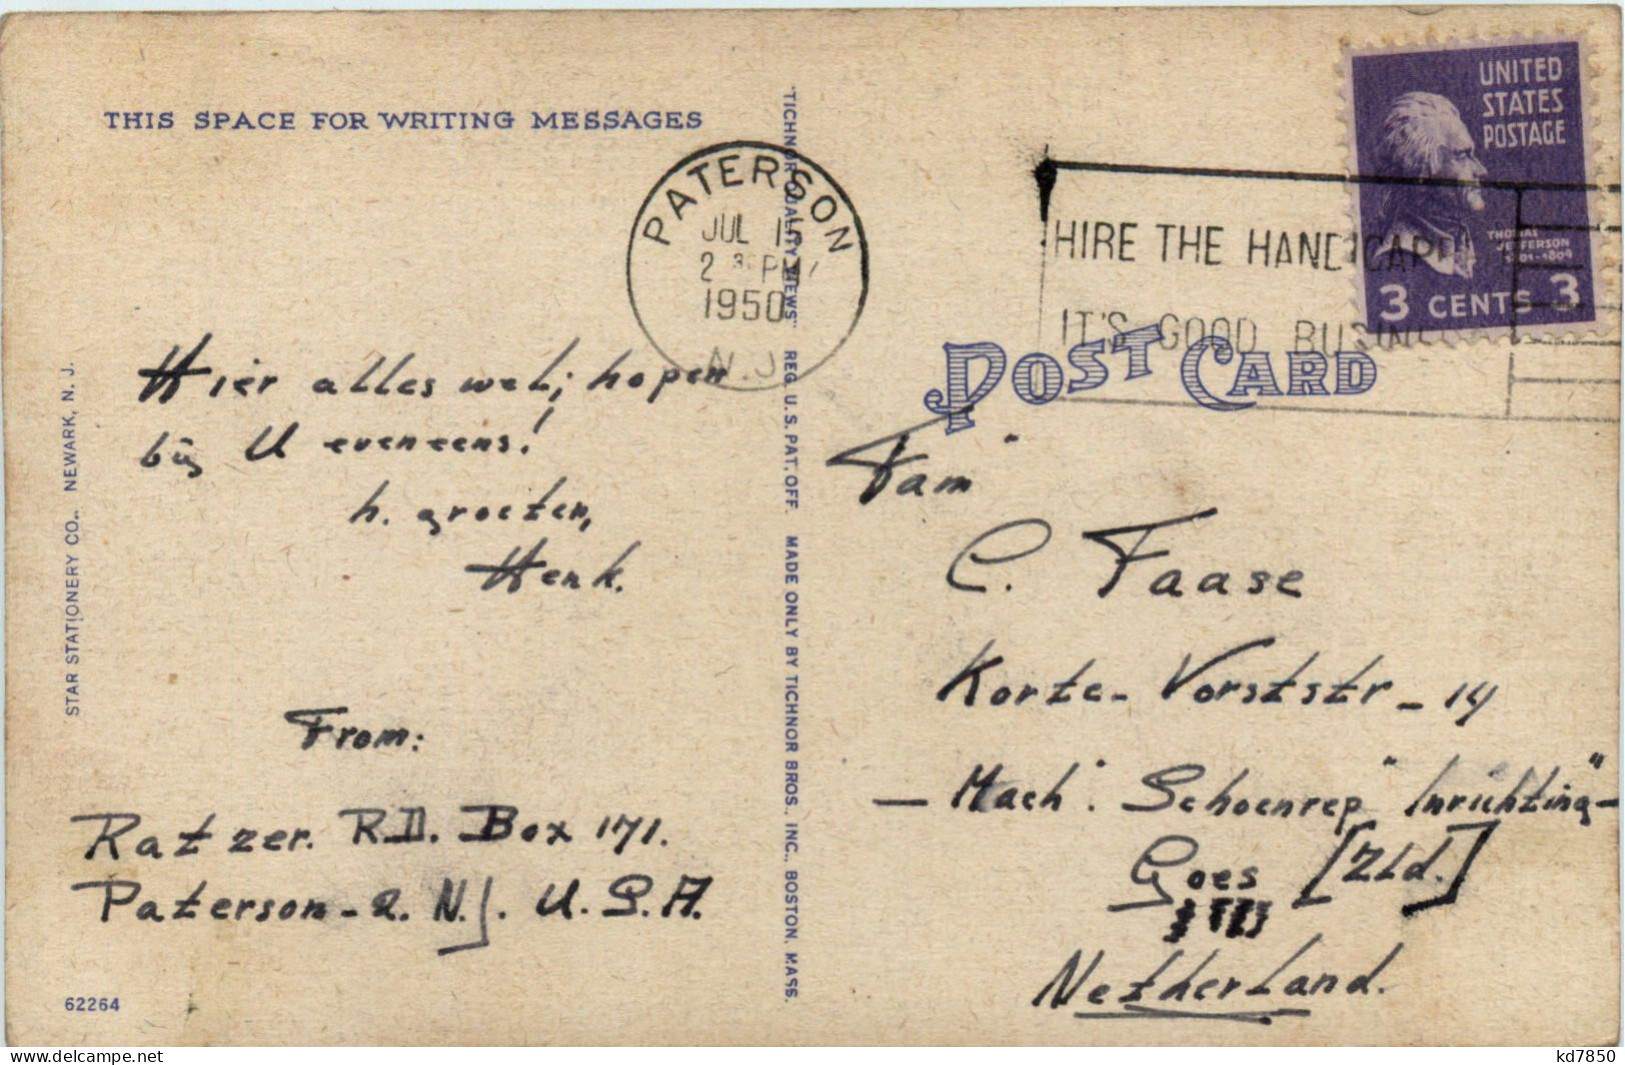 THIS SPACE FOR WRITING MESSAGES
PATERSON
JUL 15
2 30 PM
1950
N.J.
HIRE THE HANDICAPPED
IT'S GOOD BUSINESS
UNITED
STATES
POSTAGE
THOMAS
JEFFERSON
1801-1809
3 CENTS 3
POST CARD
Hier alles wel; hopen
bij U eveneens!
h. groeten,
Henk.
From:
Ratzer. R.D. Box 171.
Paterson - 2. N.J. U.S.A.
Fam"
C. Faase
Korte - Vorststr - 14
- Mach: Schoenrep" Inrichting" -
Goes [Zld.]
Netherland.
STAR STATIONERY CO., NEWARK, N. J.
"TICHNOR QUALITY VIEWS" REG. U.S. PAT. OFF. MADE ONLY BY TICHNOR BROS., INC., BOSTON, MASS.
62264
https://www.delcampe.net
kd7850